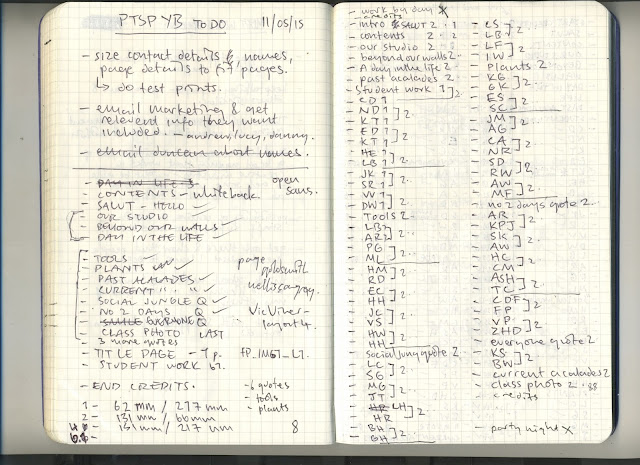 PTSP YB TO DO 11/05/15
- size contact details &, names,
page details to pages.
↳ do test prints.
- email marketing & get
relevent info they want
included. - andrew, lucy, danny.
- email duncan about names.
- DAY IN LIFE open
- CONTENTS - white back sans.
- SALUT - HELLO
- OUR STUDIO
- BEYOND OUR WALLS
- DAY IN THE LIFE
- TOOLS page
- PLANTS goldsmith
- PAST ACALADES
- CURRENT " "
- SOCIAL JUNGLE Q
- NO 2 DAYS Q
- SMILE EVERYONE Q layout 4.
CLASS PHOTO LAST
- 3 more quotes
- TITLE PAGE - 1 p.
- STUDENT WORK
- END CREDITS. - 6 quotes
- tools
- plants
1 - 62 mm / 217 mm
2 - 131 mm / 66 mm
- 131 mm / 217 mm 8
- work by day x
- credits
- intro & SALUT 2 · 1
- contents 2 · 2
- our studio 2
- beyond our walls 2
- A day in the life 2
- past acalades 2
- Student work 1 ] 2
- CD 1
- ND 1 ] 2
- KT 1
- ED 1 ] 2
- KT 1
- HE 1 ] 2
- LB 1
- JK 1 ] 2
- SR 1
- VV 1 ] 2
- DW 1
- TOOLS 2
- LB 2
- AR ] 2
- PG ] 2
- ML
- HM ] 2
- RD
- EC ] 2
- HH
- JC ] 2
- VS
- HW ] 2
- HH
- social jung quote 2
- LC ] 2
- SG
- MG ] 2
- JT
- HR LH ] 2
- HR
- BH ] 2
- GH
- CS ] 2
- LB
- LF ] 2
- IW
- Plants 2
- KG ] 2
- GK
- ES ] 2
- SC
- JM ] 2
- AG
- CA ] 2
- NR
- SD ] 2
- RW
- AW ] 2
- MF
- no 2 days quote 2
- AR ] 2
- KPJ
- SK ] 2
- AW
- HC ] 2
- CM
- ASH ] 2
- TC
- CDF ] 2
- FP
- VP ] 2
- ZHD
- everyone quote 2
- KS ] 2
- BW
- current acalades 2
- class photo 2 · 88
- credits
- party night x